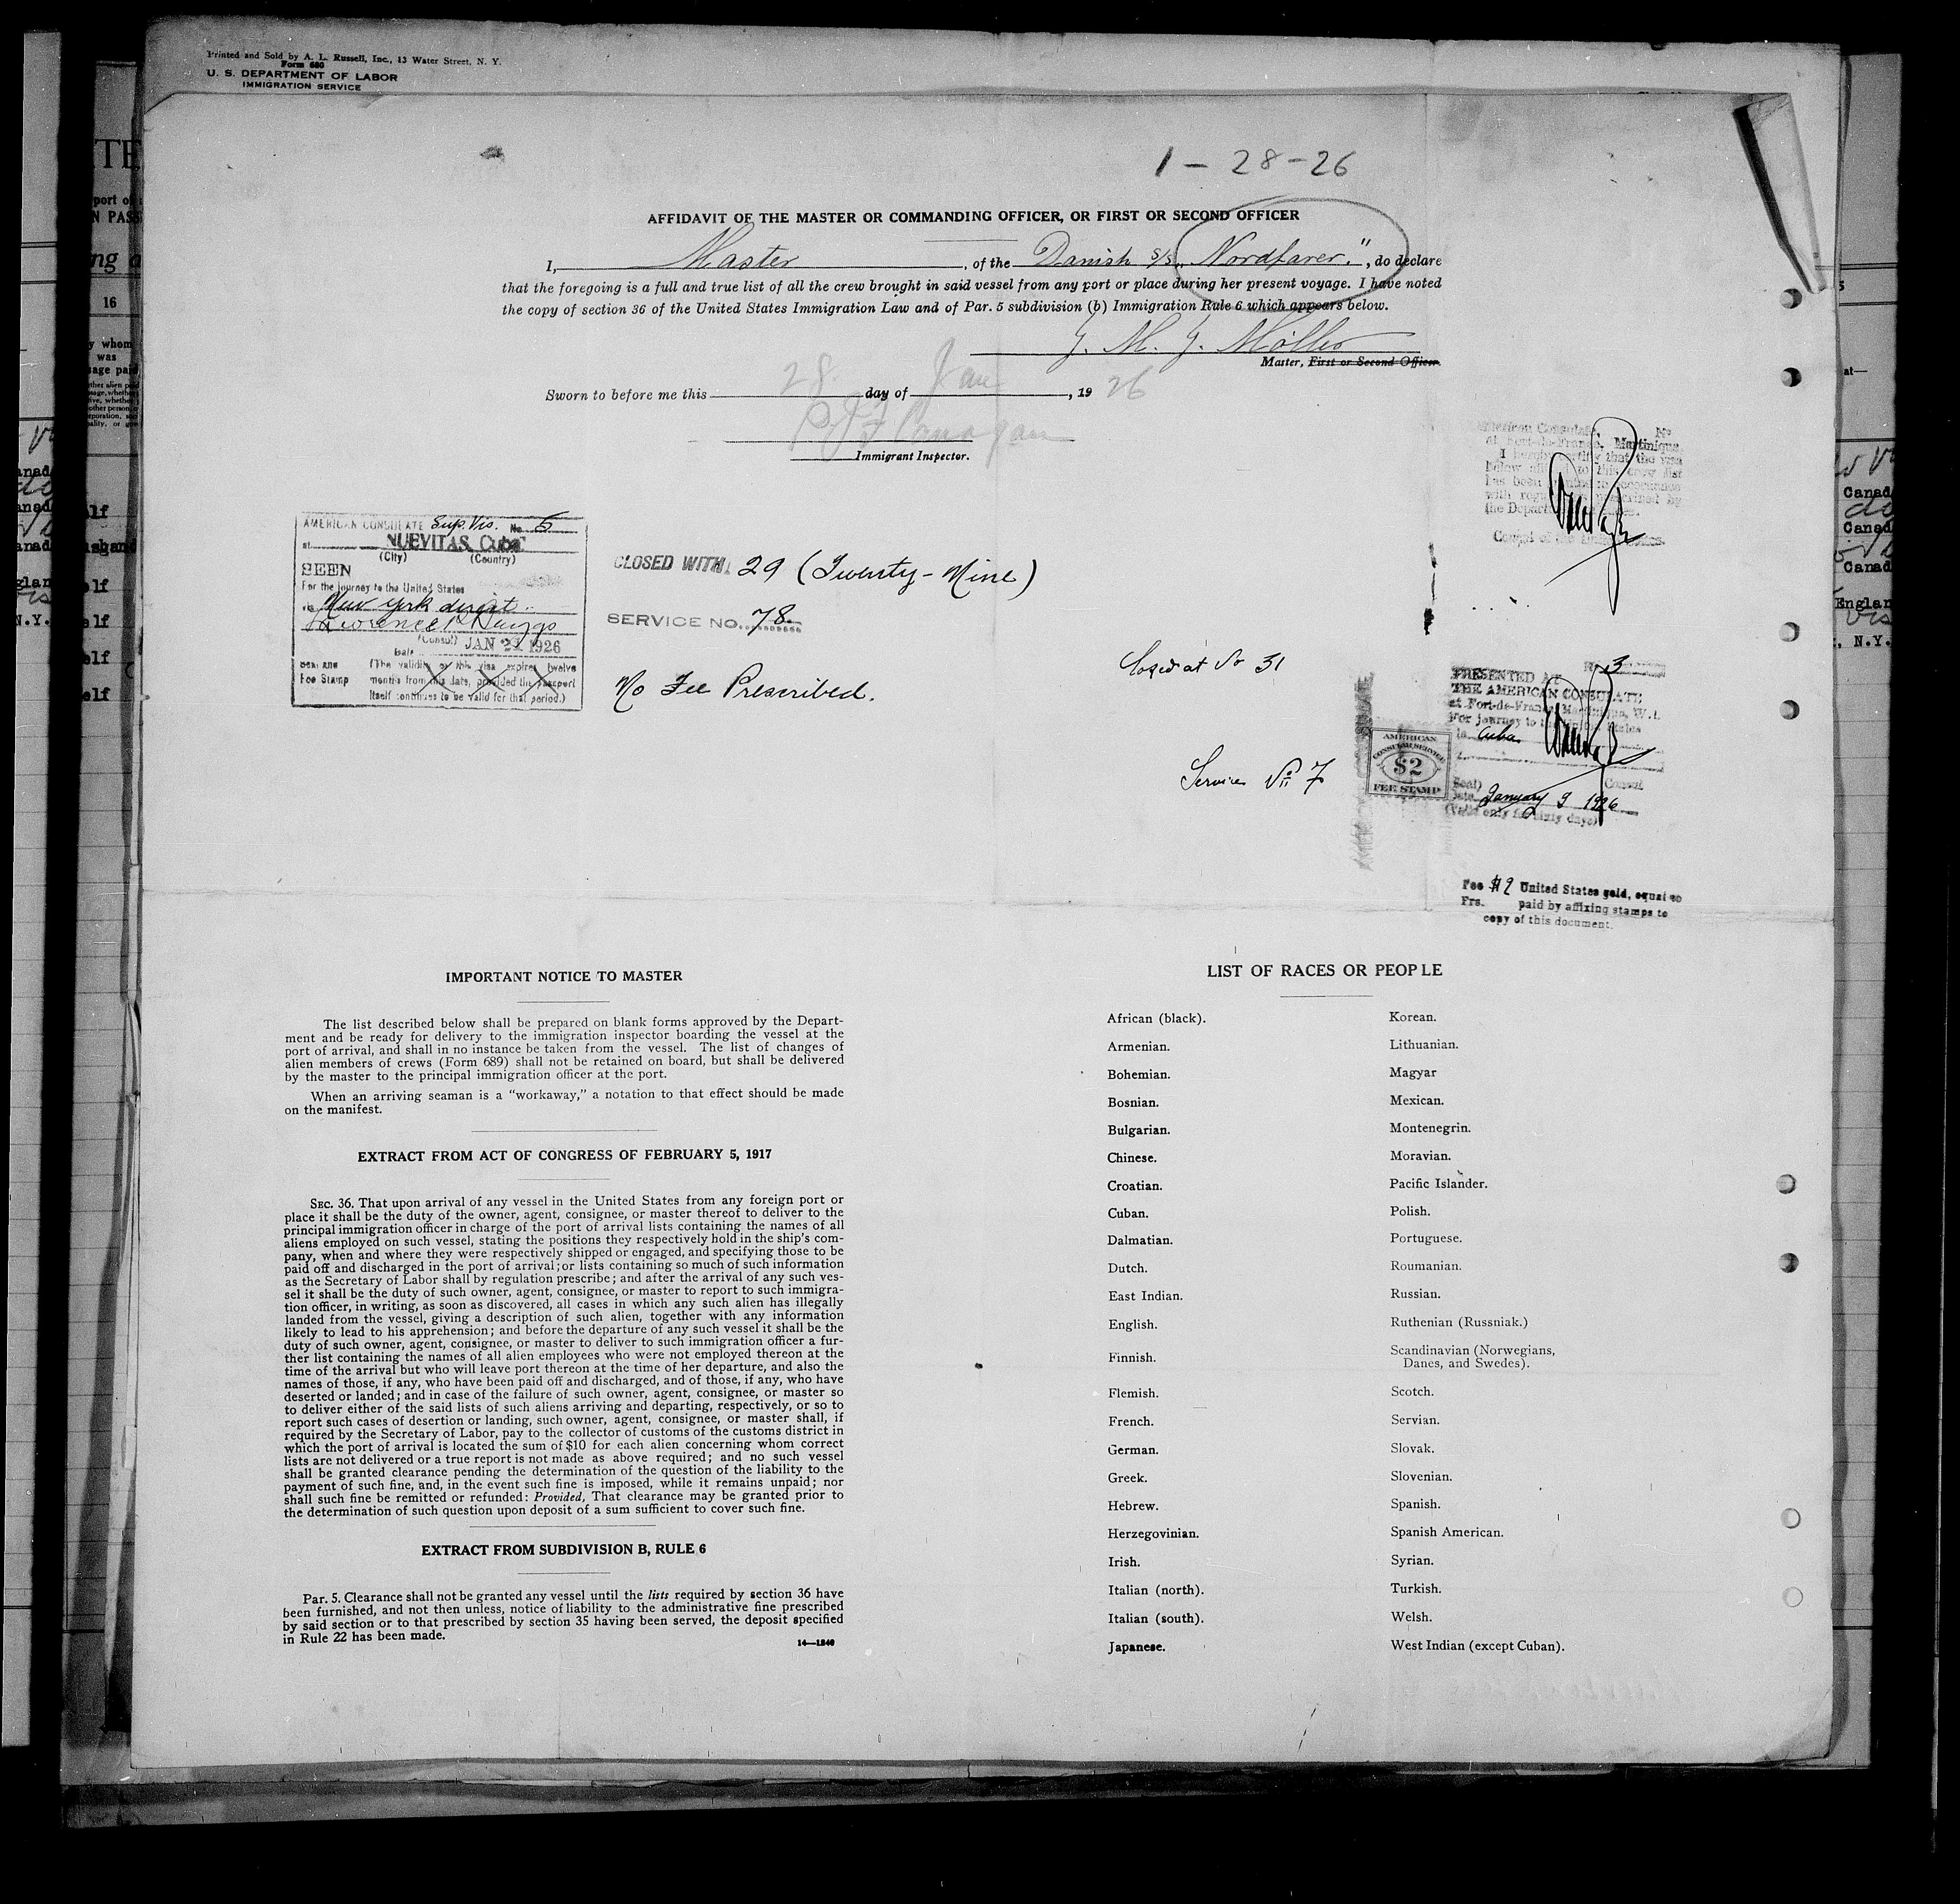 Printed and Sold by A. L. Russell, Inc., 13 Water Street, N. Y.
Form 680
U. S. DEPARTMENT OF LABOR
IMMIGRATION SERVICE
1 - 28 - 26
AFFIDAVIT OF THE MASTER OR COMMANDING OFFICER, OR FIRST OR SECOND OFFICER
I, Master, of the Danish S/S „Nordfarer.", do declare
that the foregoing is a full and true list of all the crew brought in said vessel from any port or place during her present voyage. I have noted
the copy of section 36 of the United States Immigration Law and of Par. 5 subdivision (b) Immigration Rule 6 which appears below.
J. M. J. Möller
Master, First or Second Officer.
Sworn to before me this 28 day of Jan, 1926
Immigrant Inspector.
American Consulate, No
at Fort-de-France, Martinique.
I hereby certify that the visa
to this crew list
has been in accordance
with prescribed by
the Department
AMERICAN CONSULATE Sup. Vis. No. 5
at NUEVITAS, Cuba
(City) (Country)
SEEN
For the journey to the United States
via New York direct.
(Consul)
Date JAN 21 1926
Seal and (The validity of this visa expires twelve
Fee Stamp months from this date, provided the passport
itself continues to be valid for that period.)
CLOSED WITH 29 (Twenty-Nine)
SERVICE NO. 78
No Fee Prescribed.
Closed at No 31
Service No 7
AMERICAN
CONSULAR SERVICE
$2
FEE STAMP
No 3
PRESENTED AT
THE AMERICAN CONSULATE
at Fort-de-France, Martinique, W.I.
For journey to the United States
via Cuba
(Seal) Consul
Date January 9 1926
(Valid only for sixty days)
Fee $2 United States gold, equal to
Frs. paid by affixing stamps to
copy of this document.
IMPORTANT NOTICE TO MASTER
The list described below shall be prepared on blank forms approved by the Depart-
ment and be ready for delivery to the immigration inspector boarding the vessel at the
port of arrival, and shall in no instance be taken from the vessel. The list of changes of
alien members of crews (Form 689) shall not be retained on board, but shall be delivered
by the master to the principal immigration officer at the port.
When an arriving seaman is a "workaway," a notation to that effect should be made
on the manifest.
EXTRACT FROM ACT OF CONGRESS OF FEBRUARY 5, 1917
SEC. 36. That upon arrival of any vessel in the United States from any foreign port or
place it shall be the duty of the owner, agent, consignee, or master thereof to deliver to the
principal immigration officer in charge of the port of arrival lists containing the names of all
aliens employed on such vessel, stating the positions they respectively hold in the ship's com-
pany, when and where they were respectively shipped or engaged, and specifying those to be
paid off and discharged in the port of arrival; or lists containing so much of such information
as the Secretary of Labor shall by regulation prescribe; and after the arrival of any such ves-
sel it shall be the duty of such owner, agent, consignee, or master to report to such immigra-
tion officer, in writing, as soon as discovered, all cases in which any such alien has illegally
landed from the vessel, giving a description of such alien, together with any information
likely to lead to his apprehension; and before the departure of any such vessel it shall be the
duty of such owner, agent, consignee, or master to deliver to such immigration officer a fur-
ther list containing the names of all alien employees who were not employed thereon at the
time of the arrival but who will leave port thereon at the time of her departure, and also the
names of those, if any, who have been paid off and discharged, and of those, if any, who have
deserted or landed; and in case of the failure of such owner, agent, consignee, or master so
to deliver either of the said lists of such aliens arriving and departing, respectively, or so to
report such cases of desertion or landing, such owner, agent, consignee, or master shall, if
required by the Secretary of Labor, pay to the collector of customs of the customs district in
which the port of arrival is located the sum of $10 for each alien concerning whom correct
lists are not delivered or a true report is not made as above required; and no such vessel
shall be granted clearance pending the determination of the question of the liability to the
payment of such fine, and, in the event such fine is imposed, while it remains unpaid; nor
shall such fine be remitted or refunded: Provided, That clearance may be granted prior to
the determination of such question upon deposit of a sum sufficient to cover such fine.
EXTRACT FROM SUBDIVISION B, RULE 6
Par. 5. Clearance shall not be granted any vessel until the lists required by section 36 have
been furnished, and not then unless, notice of liability to the administrative fine prescribed
by said section or to that prescribed by section 35 having been served, the deposit specified
in Rule 22 has been made.
14—1240
LIST OF RACES OR PEOPLE
African (black).
Armenian.
Bohemian.
Bosnian.
Bulgarian.
Chinese.
Croatian.
Cuban.
Dalmatian.
Dutch.
East Indian.
English.
Finnish.
Flemish.
French.
German.
Greek.
Hebrew.
Herzegovinian.
Irish.
Italian (north).
Italian (south).
Japanese.
Korean.
Lithuanian.
Magyar
Mexican.
Montenegrin.
Moravian.
Pacific Islander.
Polish.
Portuguese.
Roumanian.
Russian.
Ruthenian (Russniak.)
Scandinavian (Norwegians,
Danes, and Swedes).
Scotch.
Servian.
Slovak.
Slovenian.
Spanish.
Spanish American.
Syrian.
Turkish.
Welsh.
West Indian (except Cuban).